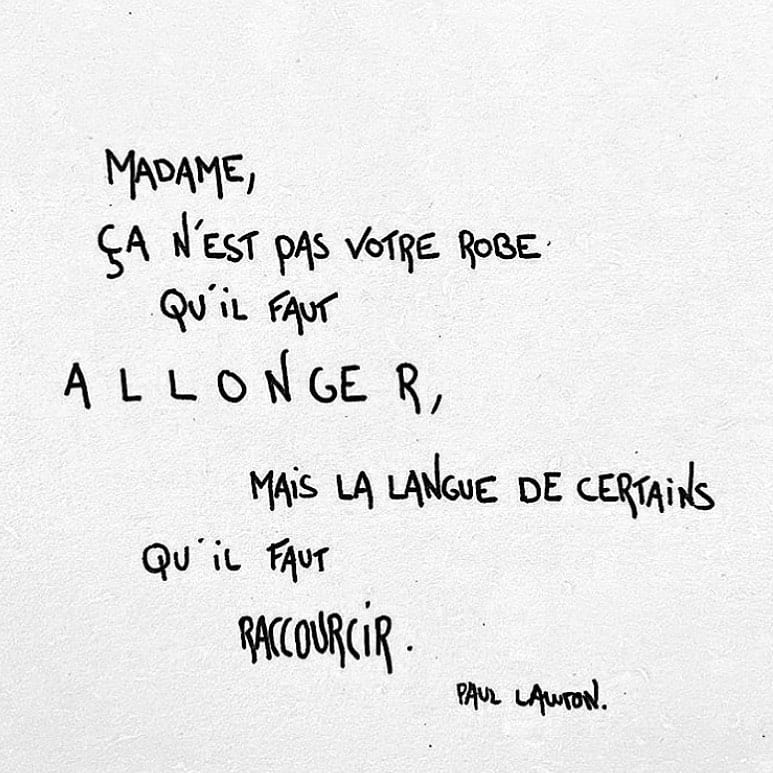 MADAME,
ÇA N'EST PAS VOTRE ROBE
QU'IL FAUT
ALLONGER,
MAiS LA LANGUE DE CERTAiNS
QU'iL FAUT
RACCOURCiR.
PAUL LAWTON.